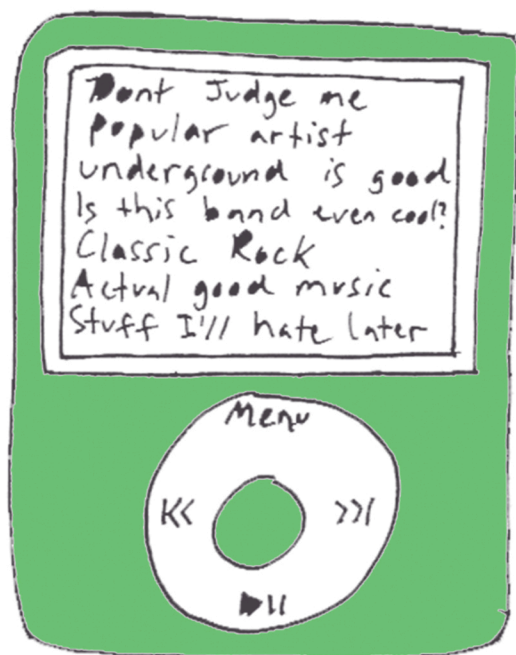 Dont Judge me
Popular artist
underground is good
Is this band even cool?
Classic Rock
Actual good music
Stuff I'll hate later
Menu